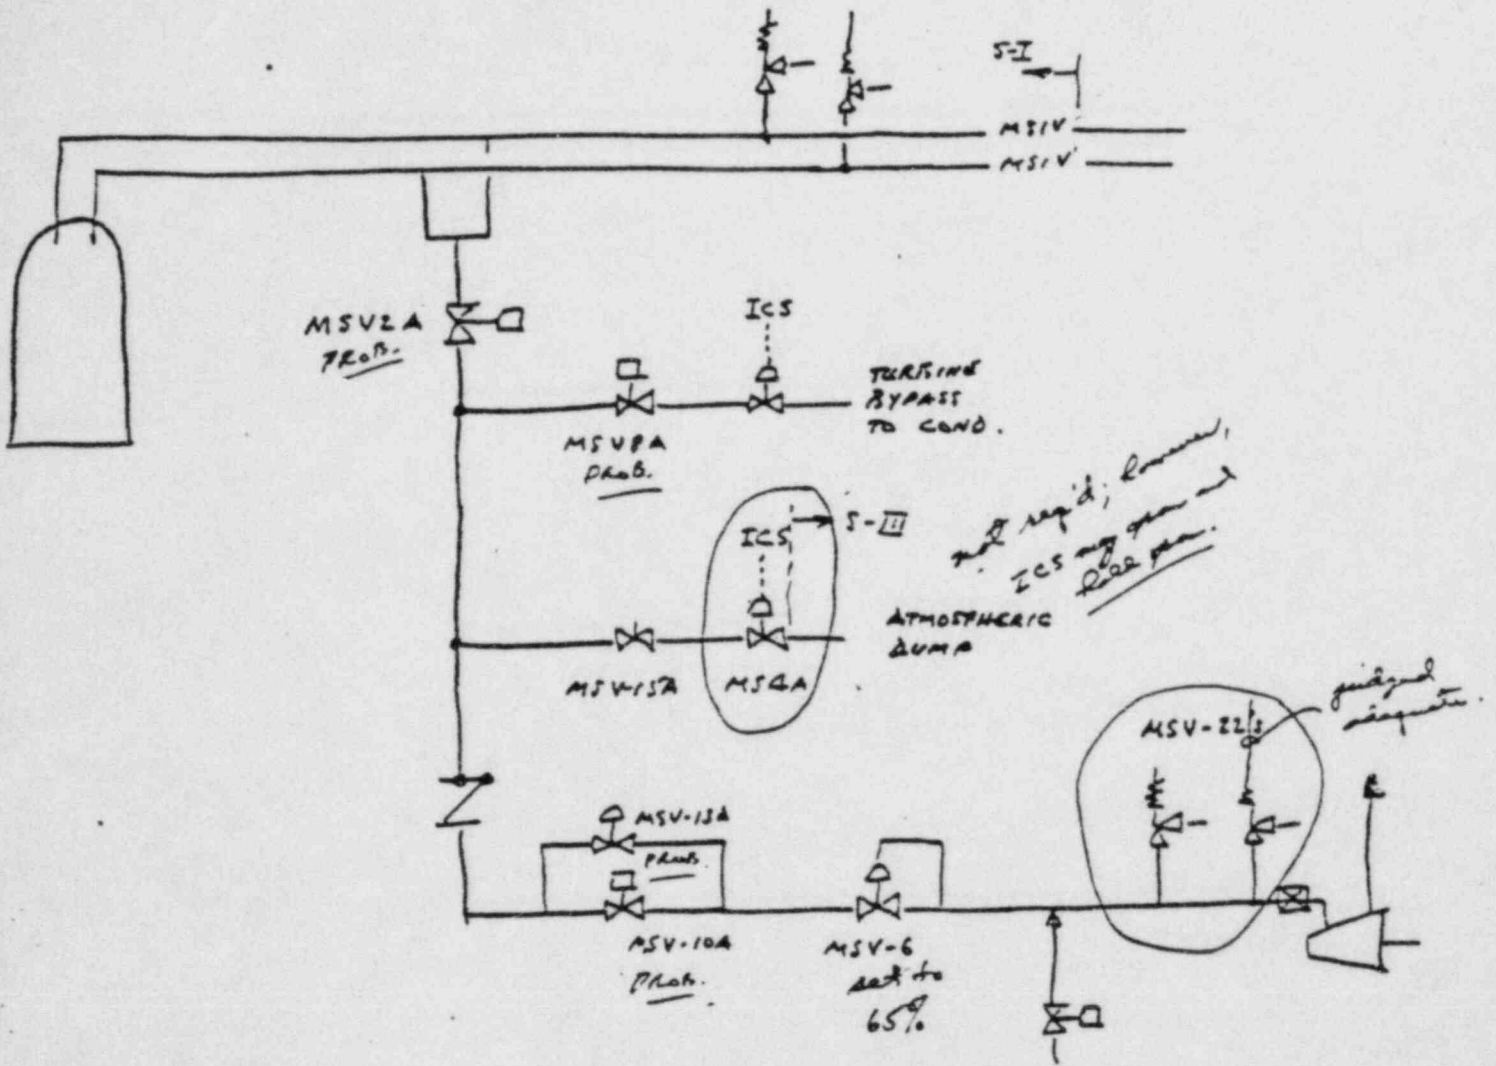 S-I
MSIV
MSIV
MSV2A
PROB.
ICS
TURBINE
BYPASS
TO COND.
MSV8A
PROB.
ICS
S-III
not req'd; however,
ICS may open and
fail open.
ATMOSPHERIC
DUMP
MSV-15A
MS4A
MSV-22's
judged
adequate.
MSV-13A
PROB.
MSV-10A
PROB.
MSV-6
set to
65%